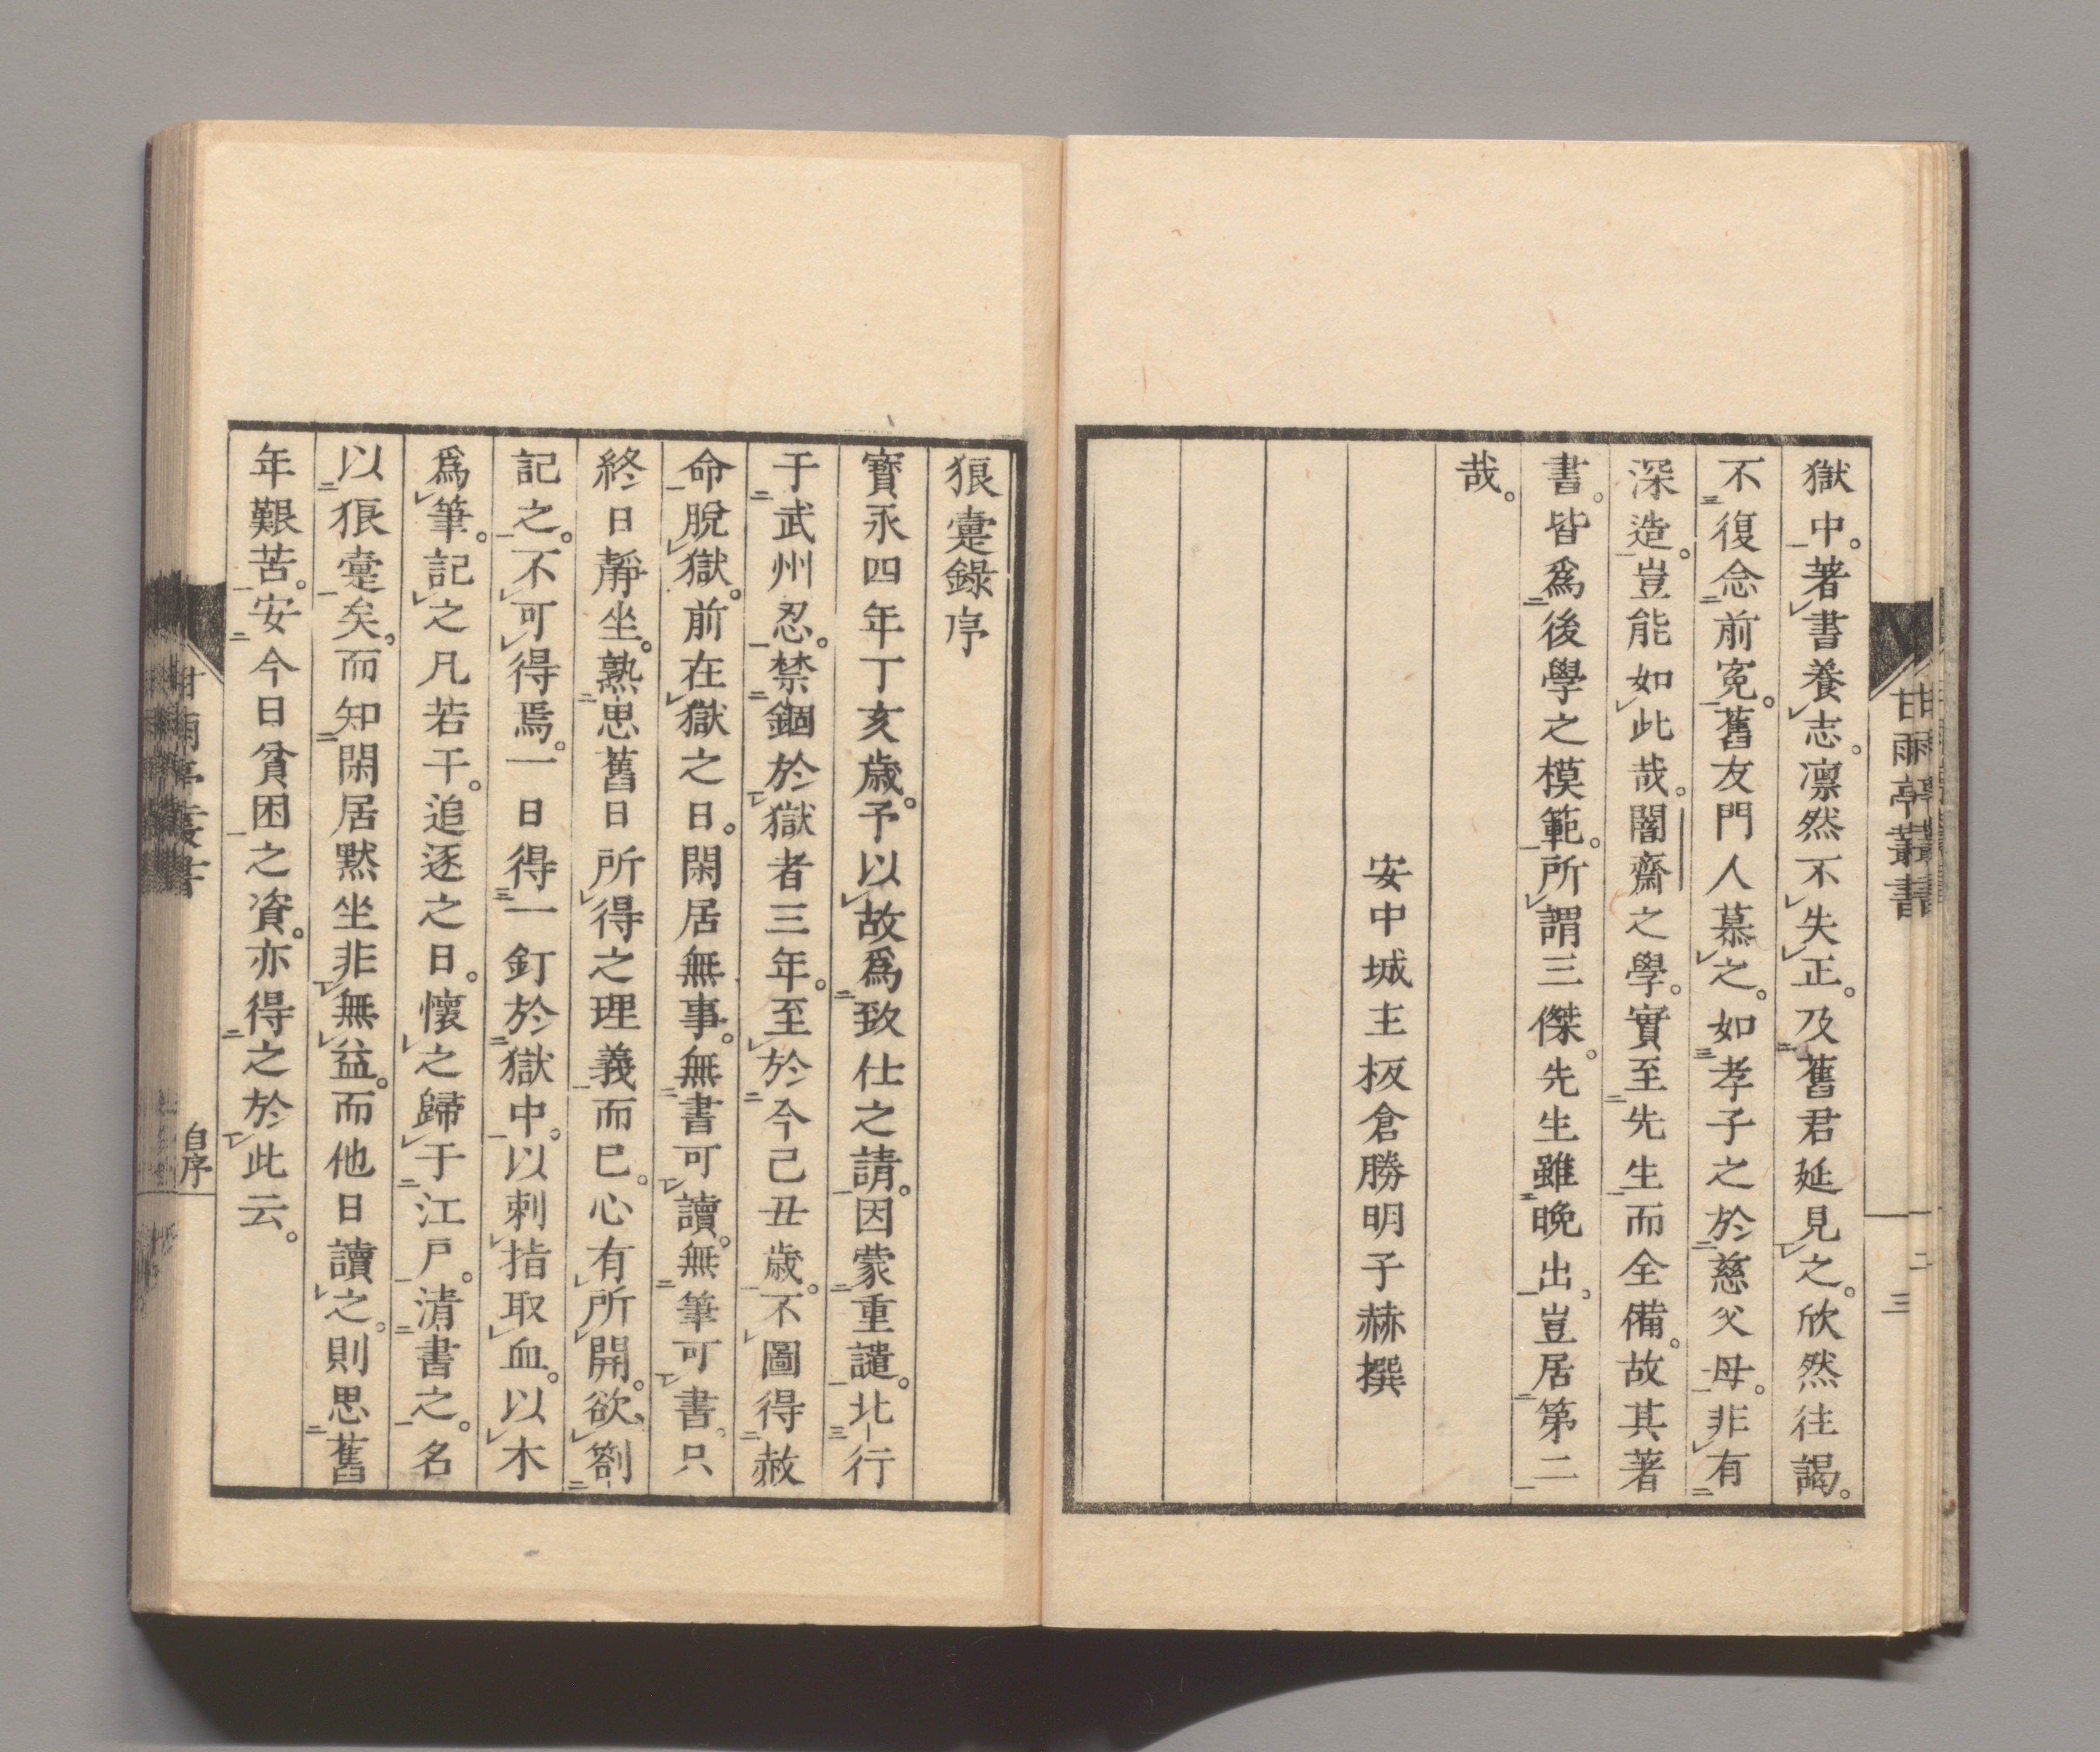 獄中。著書養志。凛然不失正。及舊君延見之。欣然往謁。
不復念前寃。舊友門人慕之。如孝子之於慈父母。非有
深造。豈能如此哉。闇齋之學。實至先生而全備。故其著
書。皆爲後學之模範。所謂三傑。先生雖晩出。豈居第二
哉。
安中城主板倉勝明子赫撰
甘雨亭叢書
三
狼疐錄序
寳永四年丁亥歲。予以故爲致仕之請。因蒙重譴。北行
于武州忍。禁錮於獄者三年。至於今己丑歲。不圖得赦
命脫獄。前在獄之日。閑居無事。無書可讀。無筆可書。只
終日靜坐。熟思舊日所得之理義而已。心有所開。欲劄
記之。不可得焉。一日得一釘於獄中。以刺指取血。以木
爲筆。記之凡若干。追逐之日。懷之歸于江戸。清書之。名
以狼疐矣。而知閑居默坐非無益。而他日讀之。則思舊
年艱苦。安今日貧困之資。亦得之於此云。
甘雨亭叢書
自序